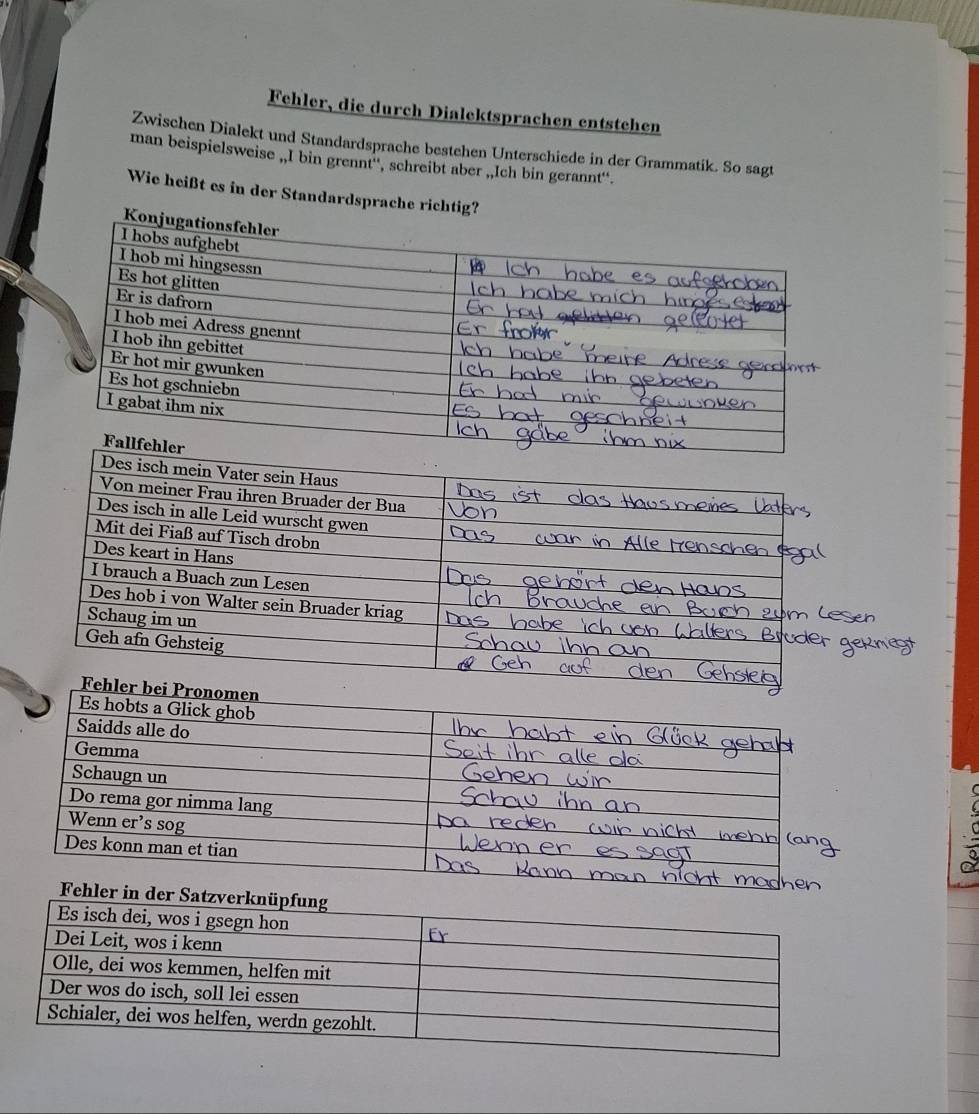 Fehler, die durch Dialektsprachen entstehen
Zwischen Dialekt und Standardsprache bestehen Unterschiede in der Grammatik. So sagt
man beispielsweise „I bin grennt“, schreibt aber „Ich bin gerannt“.
Wie heißt es in der Standardsprache richtig?
Konjugationsfehler
I hobs aufghebt Ich habe es aufgehoben
I hob mi hingsessn Ich habe mich
Es hot glitten Er hat geleotet
Er is dafrorn Er
I hob mei Adress gnennt Ich habe meine Adresse
I hob ihn gebittet Ich habe ihn gebeten
Er hot mir gwunken Er hat mir gewunken
Es hot gschniebn Es hat geschneit
I gabat ihm nix Ich gäbe ihm nix
Fallfehler
Des isch mein Vater sein Haus Das ist das Haus meines Vaters
Von meiner Frau ihren Bruader der Bua Von
Des isch in alle Leid wurscht gwen Das war in Alle Menschen egal
Mit dei Fiaß auf Tisch drobn
Des keart in Hans Das gehört den Hans
I brauch a Buach zun Lesen Ich Brauche ein Buch zum Lesen
Des hob i von Walter sein Bruader kriag Das habe ich von Walters Bruder gekriegt
Schaug im un Schau ihn an
Geh afn Gehsteig Geh auf den Gehsteig
Fehler bei Pronomen
Es hobts a Glick ghob Ihr habt ein Glück gehabt
Saidds alle do Seit ihr alle da
Gemma Gehen wir
Schaugn un Schau ihn an
Do rema gor nimma lang Da reden wir nicht mehr lang
Wenn er's sog Wenn er es sagt
Des konn man et tian Das kann man nicht machen
Fehler in der Satzverknüpfung
Es isch dei, wos i gsegn hon Er
Dei Leit, wos i kenn
Olle, dei wos kemmen, helfen mit
Der wos do isch, soll lei essen
Schialer, dei wos helfen, werdn gezohlt.
Religion